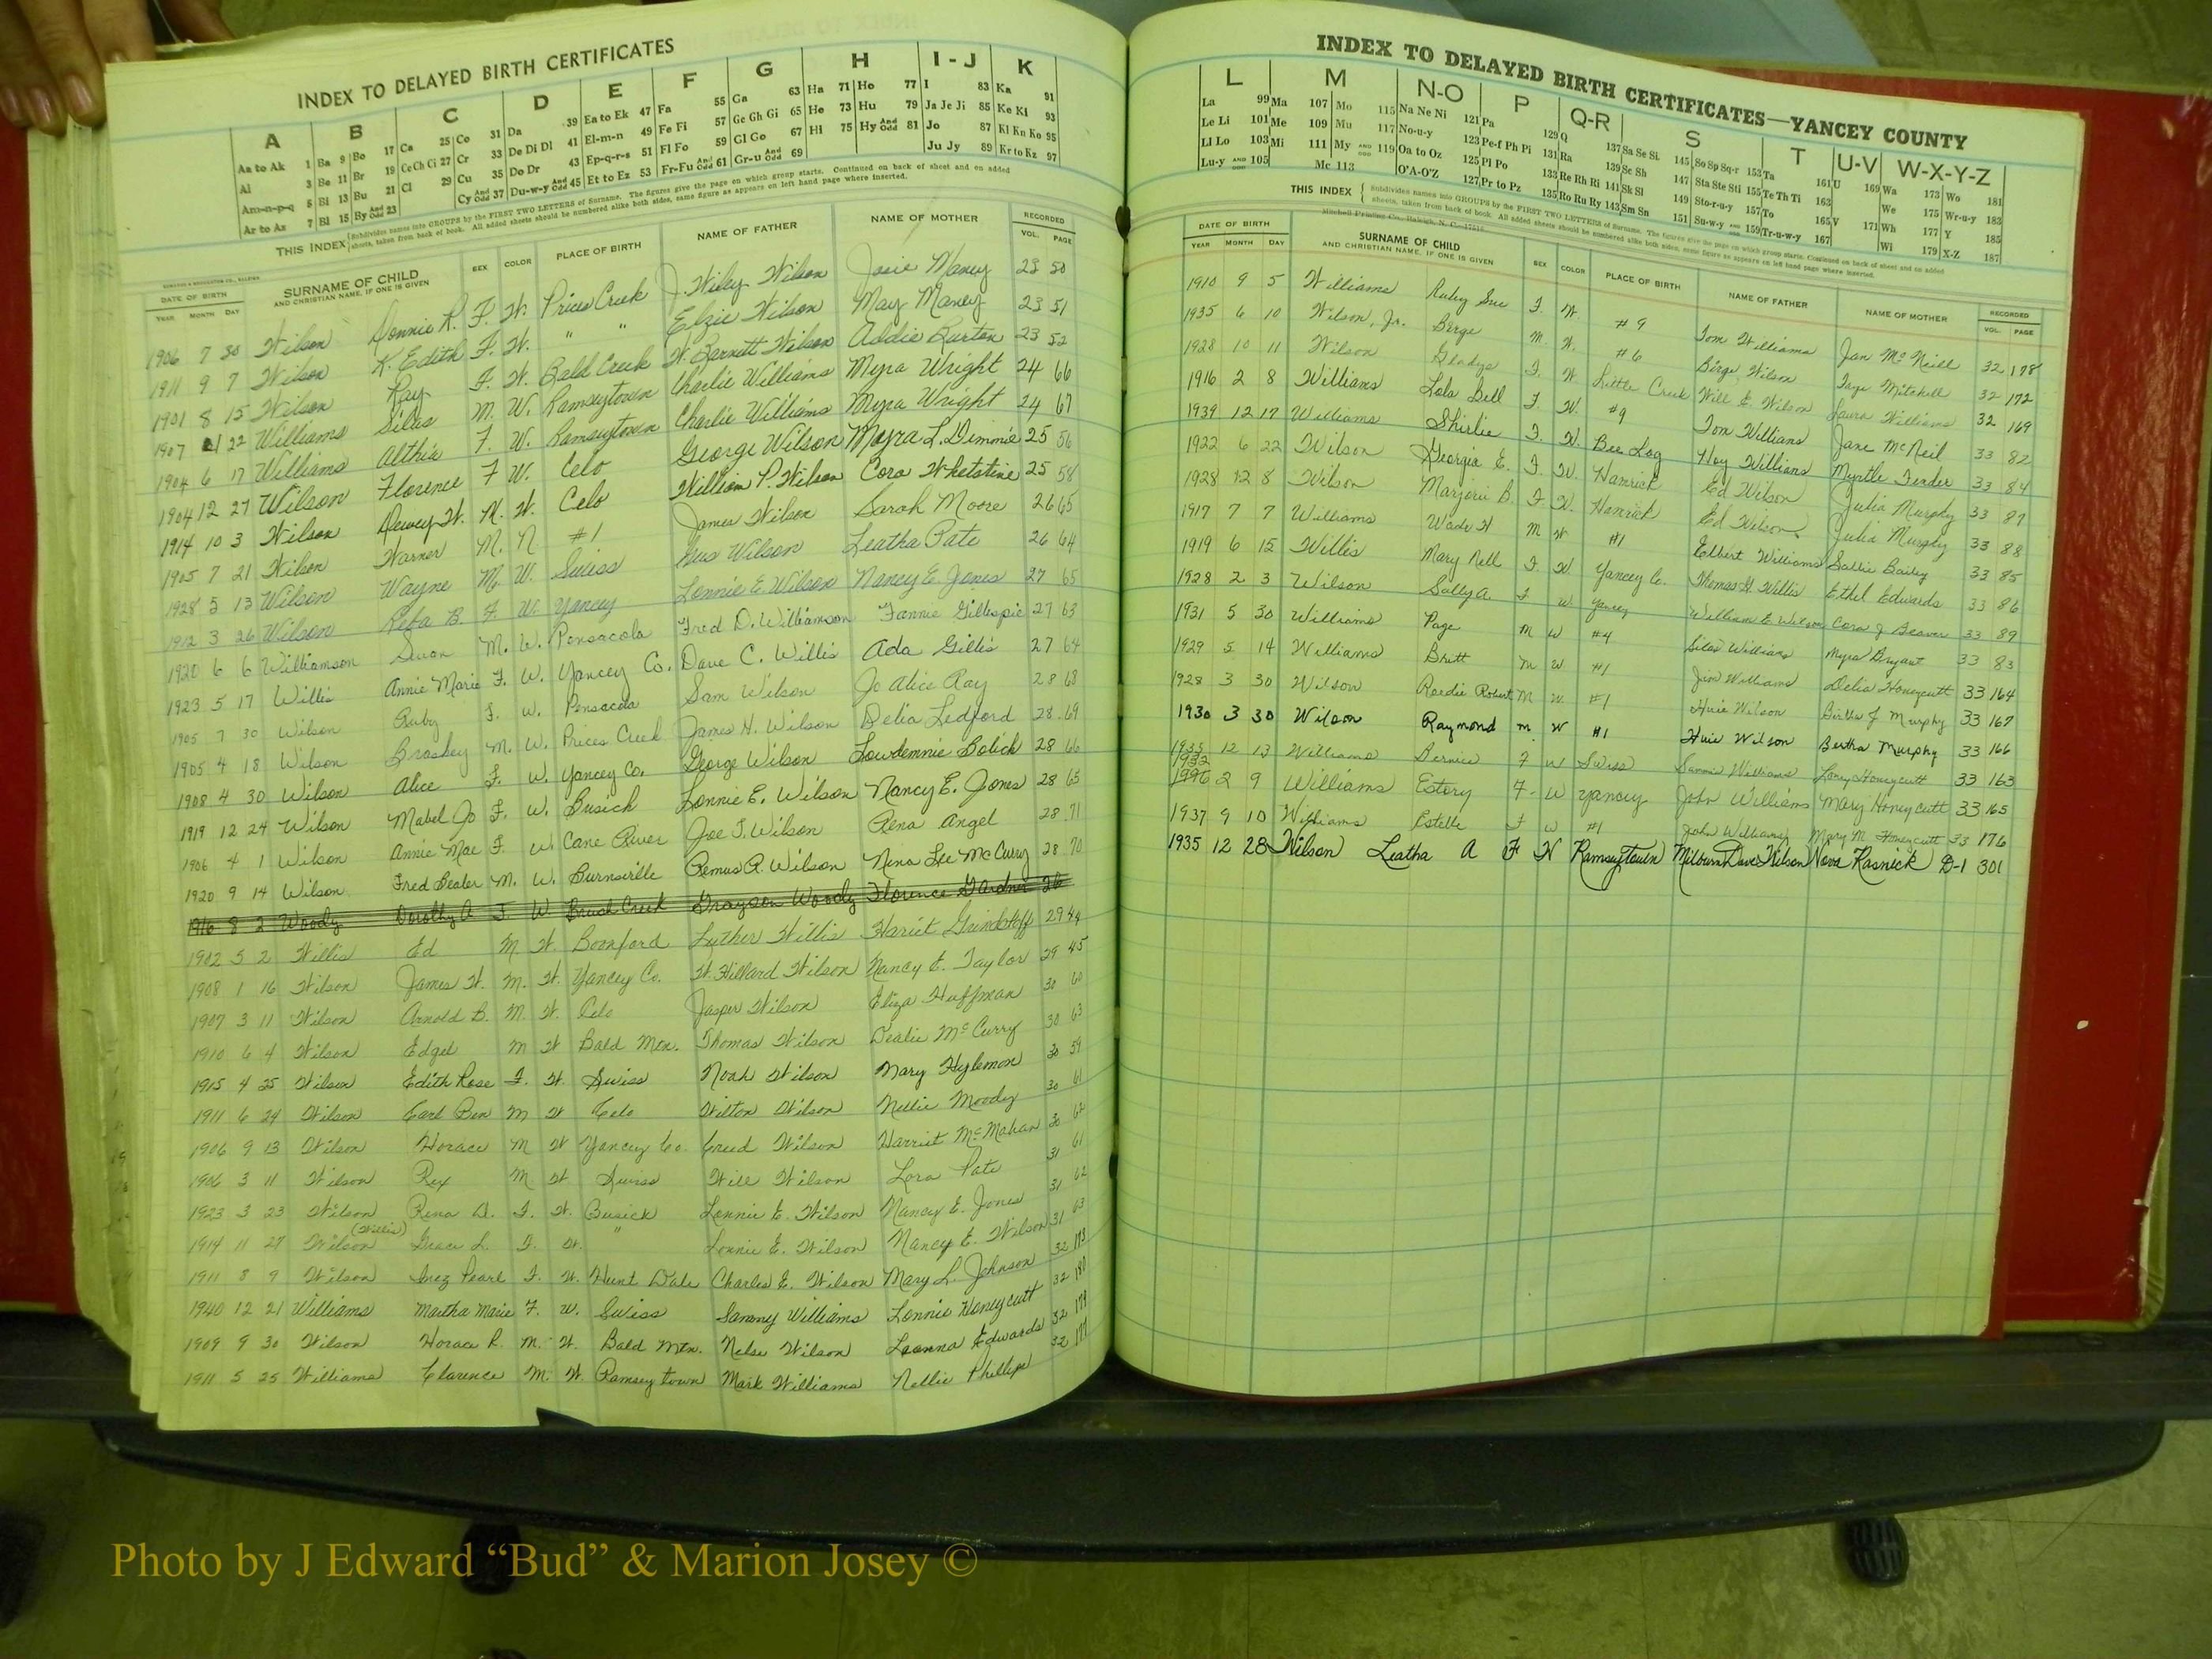 INDEX TO DELAYED BIRTH CERTIFICATES
A B C D E F G H I-J K
Aa to Ak 1 Ba 9 Bo 17 Ca 25 Co 31 Da 39 Ea to Ek 47 Fa 55 Ga 63 Ha 71 Ho 77 I 83 Ka 91
Al 3 Be 11 Br 19 Ce Ch Ci 27 Cr 33 De Di Dl 41 El-m-n 49 Fe Fi 57 Ge Gh Gi 65 He 73 Hu 79 Ja Je Ji 85 Ke Kl 93
Am-n-p-q 5 Bi 13 Bu 21 Cl 29 Cu 35 Do Dr 43 Ep-q-r-s 51 Fl Fo 59 Gl Go 67 Hi 75 Hy And Odd 81 Jo 87 Kl Kn Ko 95
Ar to Az 7 Bl 15 By And Odd 23 Cy And Odd 37 Du-w-y And Odd 45 Et to Ez 53 Fr-Fu And Odd 61 Gr-u And Odd 69 Ju Jy 89 Kr to Kz 97
THIS INDEX Subdivides names into GROUPS by the FIRST TWO LETTERS of Surname. The figures give the page on which group starts. Continued on back of sheet and on added
sheets, taken from back of book. All added sheets should be numbered alike both sides, same figure as appears on left hand page where inserted.
DATE OF BIRTH SURNAME OF CHILD SEX COLOR PLACE OF BIRTH NAME OF FATHER NAME OF MOTHER RECORDED
YEAR MONTH DAY AND CHRISTIAN NAME, IF ONE IS GIVEN VOL. PAGE
1906 7 30 Wilson Donnie R. F. W. Prices Creek J. Wiley Wilson Josie Maney 23 50
1911 9 7 Wilson K. Edith F. W. " " Elzie Wilson May Maney 23 51
1901 8 15 Wilson Ray F. W. Bald Creek W. Barnett Wilson Addie Burton 23 52
1907 22 Williams Silas M. W. Ramseytown Charlie Williams Myra Wright 24 66
1904 6 17 Williams Althia F. W. Ramseytown Charlie Williams Myra Wright 24 67
1904 12 27 Wilson Florence F W. Celo George Wilson Mayra L. Dimmie 25 56
1914 10 3 Wilson Dewey W. M. W. Celo William P. Wilson Cora Whetstine 25 58
1905 7 21 Wilson Warner M. N #1 James Wilson Sarah Moore 26 65
1928 5 13 Wilson Wayne M. W. Swiss Gus Wilson Leatha Pate 26 64
1912 3 26 Wilson Reba B. F. W. Yancey Lonnie E. Wilson Nancy E. Jones 27 65
1920 6 6 Williamson Swan M. W. Pensacola Fred D. Williamson Fannie Gillespie 27 63
1923 5 17 Willis Annie Marie F. W. Yancey Co. Dave C. Willis Ada Gillis 27 64
1905 7 30 Wilson Ruby F. W. Pensacola Sam Wilson Jo Alice Ray 28 68
1905 4 18 Wilson Broskey M. W. Prices Creek James H. Wilson Delia Ledford 28 69
1908 4 30 Wilson Alice F. W. Yancey Co. George Wilson Lowdennie Bolick 28 66
1919 12 24 Wilson Mabel Jo F. W. Busick Lonnie E. Wilson Nancy E. Jones 28 65
1906 4 1 Wilson Annie Mae F. W. Cane River Joe F. Wilson Rena Angel 28 71
1920 9 14 Wilson Fred Dealer M. W. Burnsville Remus R. Wilson Nina Lee McCurry 28 70
1916 8 2 Woody Dorothy A F. W. Brush Creek Grayson Woody Florence Gardner 26
1902 5 2 Willis Ed M. W. Boonford Luther Willis Hariet Grindstaff 29 44
1908 1 16 Wilson James W. M. W. Yancey Co. W. Hilliard Wilson Nancy E. Taylor 29 45
1907 3 11 Wilson Arnold B. M. W. Celo Jasper Wilson Eliza Huffman 30 60
1910 6 4 Wilson Edgel M W Bald Mtn. Thomas Wilson Dealie McCurry 30 63
1915 4 25 Wilson Edith Rose F. W. Swiss Noah Wilson Mary Hylemon 30 59
1911 6 24 Wilson Earl Ben M W Celo Wilton Wilson Nellie Moody 30 61
1906 9 13 Wilson Horace M W Yancey Co. Creed Wilson Harriet McMahan 30 62
1906 3 11 Wilson Rex M W Swiss Will Wilson Lora Pate 31 61
1923 3 23 Wilson Rena D. F. W. Busick Lonnie E. Wilson Nancy E. Jones 31 62
1914 11 27 Wilson (Willis) Grace L. F. W. " Lonnie E. Wilson Nancy E. Wilson 31 63
1911 8 9 Wilson Inez Pearl F. W. Hunt Dale Charles E. Wilson Mary L. Johnson 32 173
1940 12 21 Williams Martha Marie F. W. Swiss Sammy Williams Lonnie Honeycutt 32 180
1909 9 30 Wilson Horace R. M. W. Bald Mtn. Nelse Wilson Leanna Edwards 32 179
1911 5 25 Williams Clarence M. W. Ramsey town Mark Williams Nellie Phillips 32 177
INDEX TO DELAYED BIRTH CERTIFICATES—YANCEY COUNTY
L M N-O P Q-R S T U-V W-X-Y-Z
La 99 Ma 107 Mo 115 Na Ne Ni 121 Pa 129 Q 137 Sa Se Si 145 So Sp Sq-r 153 Ta 161 U 169 Wa 173 Wo 181
Le Li 101 Me 109 Mu 117 No-u-y 123 Pe-f Ph Pi 131 Ra 139 Sc Sh 147 Sta Ste Sti 155 Te Th Ti 163 We 175 Wr-u-y 183
Ll Lo 103 Mi 111 My AND ODD 119 Oa to Oz 125 Pl Po 133 Re Rh Ri 141 Sk Sl 149 Sto-r-u-y 157 To 165 V 171 Wh 177 Y 185
Lu-y AND ODD 105 Mc 113 O'A-O'Z 127 Pr to Pz 135 Ro Ru Ry 143 Sm Sn 151 Su-w-y AND ODD 159 Tr-u-w-y 167 Wi 179 X-Z 187
THIS INDEX Subdivides names into GROUPS by the FIRST TWO LETTERS of Surname. The figures give the page on which group starts. Continued on back of sheet and on added
sheets, taken from back of book. All added sheets should be numbered alike both sides, same figure as appears on left hand page where inserted.
Mitchell Printing Co., Raleigh, N. C.
DATE OF BIRTH SURNAME OF CHILD SEX COLOR PLACE OF BIRTH NAME OF FATHER NAME OF MOTHER RECORDED
YEAR MONTH DAY AND CHRISTIAN NAME, IF ONE IS GIVEN VOL. PAGE
1910 9 5 Williams Ruby Sue F. W. #9 Tom Williams Jan McNeill 32 178
1935 6 10 Wilson, Jr. Birge M. W. #6 Birge Wilson Faye Mitchell 32 172
1928 10 11 Wilson Gladys F. W Little Creek Will E. Wilson Laura Williams 32 169
1916 2 8 Williams Lola Bell F. W. #9 Tom Williams Jane McNeil 33 82
1939 12 17 Williams Shirlie F. W. Bee Log Hoy Williams Myrtle Fender 33 84
1922 6 22 Wilson Georgia E. F. W. Hamrick Ed Wilson Julia Murphy 33 87
1928 12 8 Wilson Marjorie B. F. W. Hamrick Ed Wilson Julia Murphy 33 88
1917 7 7 Williams Wade H M W #1 Elbert Williams Sallie Bailey 33 85
1919 6 15 Willis Mary Nell F. W. Yancey Co. Thomas G. Willis Ethel Edwards 33 86
1928 2 3 Wilson Sally A. F W Yancey William E. Wilson Cora J Beaver 33 89
1931 5 30 Williams Page M W #4 Silas Williams Myra Bryant 33 83
1929 5 14 Williams Britt M W. #1 Jim Williams Delia Honeycutt 33 164
1928 3 30 Wilson Roedie Robert M W. #1 Huie Wilson Birtha J Murphy 33 167
1930 3 30 Wilson Raymond m W #1 Huie Wilson Bertha Murphy 33 166
1935 12 13 Williams Bernice F W Swiss Sammie Williams Loney Honeycutt 33 163
1932
1996 2 9 Williams Estory F. W Yancey John Williams Mary Honeycutt 33 165
1937 9 10 Williams Estelle F W #1 John Williams Mary M. Honeycutt 33 176
1935 12 28 Wilson Leatha A F W Ramseytown Milburn Dave Wilson Nova Rasnick D-1 301
Photo by J Edward “Bud” & Marion Josey ©